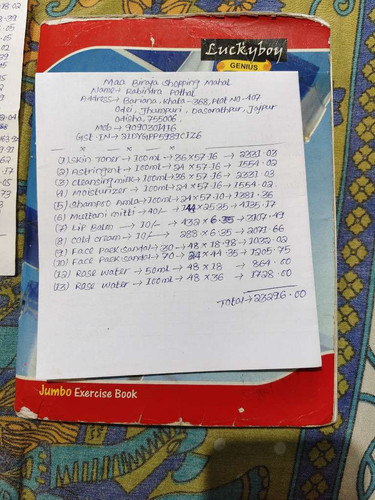 Luckyboy
GENIUS
Maa Biraja Shopping Mahal
Name → Rabindra Pothal
Address → Bariana, Khata - 368, Plot No - 407
Odei, Jhumpuri, Dasarathpur, Jajpur
Odisha, 755006,
Mob → 9090202416
Gst. IN → 21DYGPP5989C1Z6
(1) Skin Toner → 100ml → 36 x 57.16 → 2331.03
(2) Astringent → 100ml → 24 x 57.16 → 1554.02
(3) Cleansing milk → 100ml → 36 x 57.16 → 2331.03
(4) Moisturizer → 100ml → 24 x 57.16 → 1554.02
(5) Shampoo Amla → 100ml → 24 x 57.10 → 1381.36
(6) Multani mitti → 40/- → 144 x 25.25 → 4135.17
(7) Lip Balm → 10/- → 432 x 6.35 → 3107.49
(8) Cold cream → 10/- → 288 x 6.25 → 2071.66
(9) Face Pack sandal → 30 → 48 x 18.98 → 1032.02
(10) Face Pack sandal → 70 → 24 x 44.35 → 1205.75
(12) Rose Water → 50ml → 48 x 18 → 864.00
(13) Rose Water → 100ml → 48 x 36 → 1728.00
Total → 23296.00
Jumbo Exercise Book